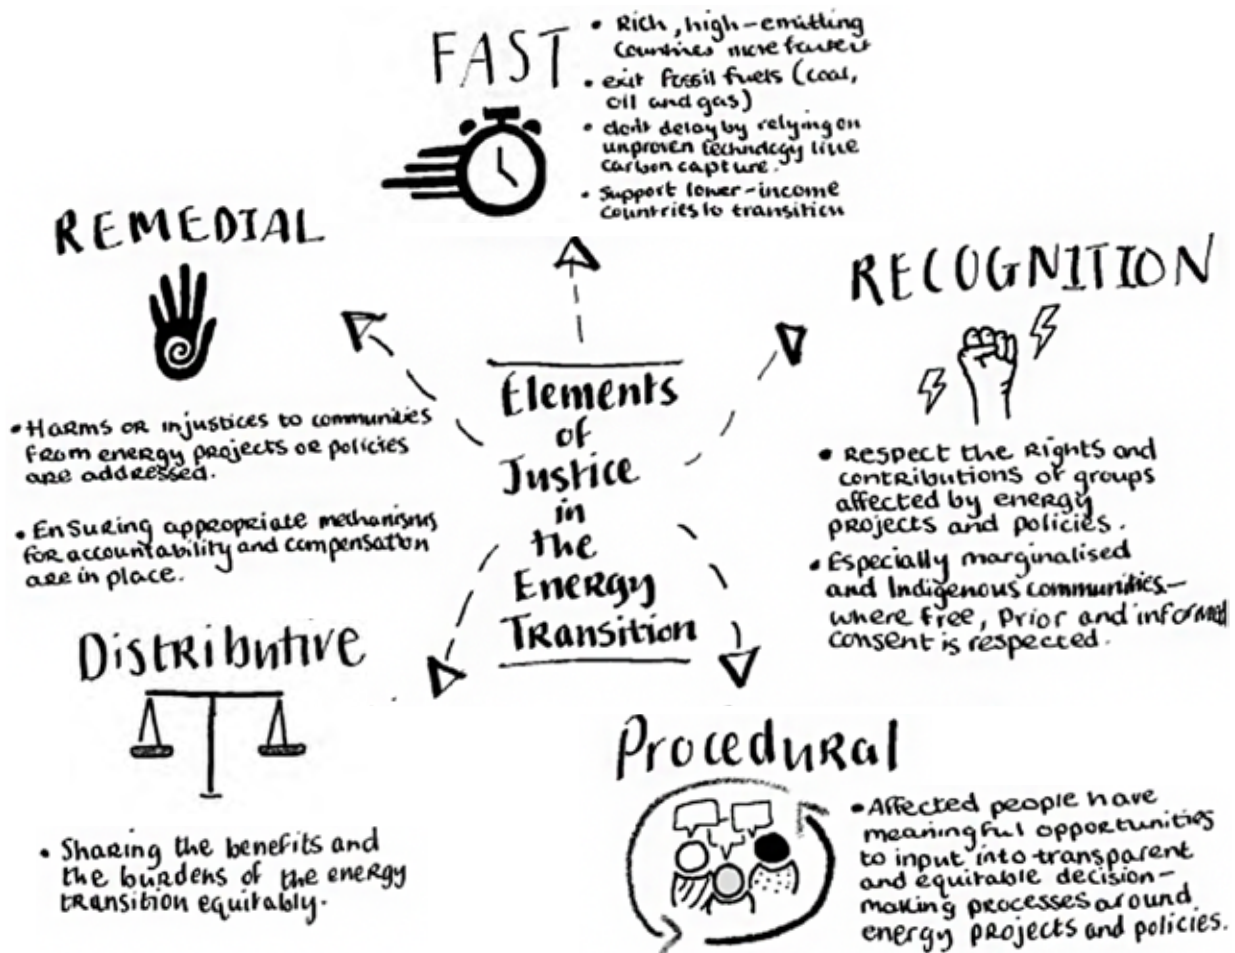 FAST
• Rich, high-emitting
countries move fastest
• exit fossil fuels (coal,
oil and gas)
• don't delay by relying on
unproven technology like
carbon capture.
• Support lower-income
countries to transition
REMEDIAL
• Harms or injustices to communities
from energy projects or policies
are addressed.
• Ensuring appropriate mechanisms
for accountability and compensation
are in place.
RECOGNITION
• Respect the rights and
contributions of groups
affected by energy
projects and policies.
• Especially marginalised
and Indigenous communities—
where free, prior and informed
consent is respected.
Elements
of
Justice
in
the
Energy
Transition
Distributive
• Sharing the benefits and
the burdens of the energy
transition equitably.
Procedural
• Affected people have
meaningful opportunities
to input into transparent
and equitable decision-
making processes around
energy projects and policies.